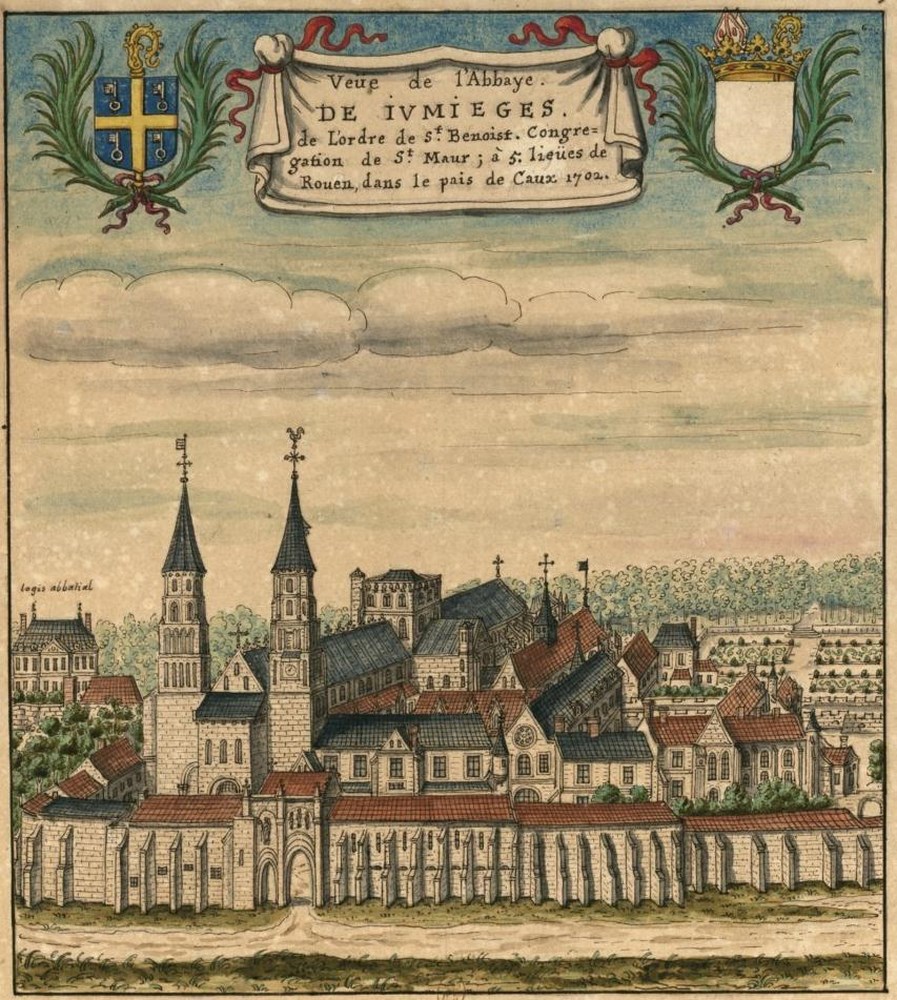 Veüe de l'Abbaye.
DE IVMIEGES.
de L'ordre de S.t Benoist. Congre=
gation de S.t Maur; à 5. lieües de
Rouen, dans le pais de Caux 1702.
logis abbatial